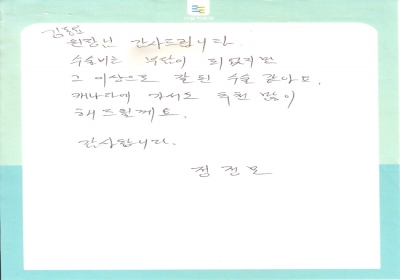 원장님 감사드립니다.
수술비는 부담이 되었지만
그 이상으로 잘된 수술 같아요.
캐나다에 가서도 추천 많이
해드릴께요.
감사합니다.